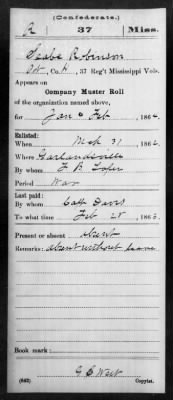 (Confederate.)
R 37 Miss.
Robinson
Pvt., Co. H, 37 Reg't Mississippi Vols.
Appears on
Company Muster Roll
of the organization named above,
for Jan & Feb, 186
Enlisted:
When Mch 31, 186
Where Garlandsville
By whom F B Loper
Period War
Last paid:
By whom Capt Davis
To what time Feb 28, 1863.
Present or absent absent
Remarks: absent without leave
Book mark:
(642)
G B West
Copyist.